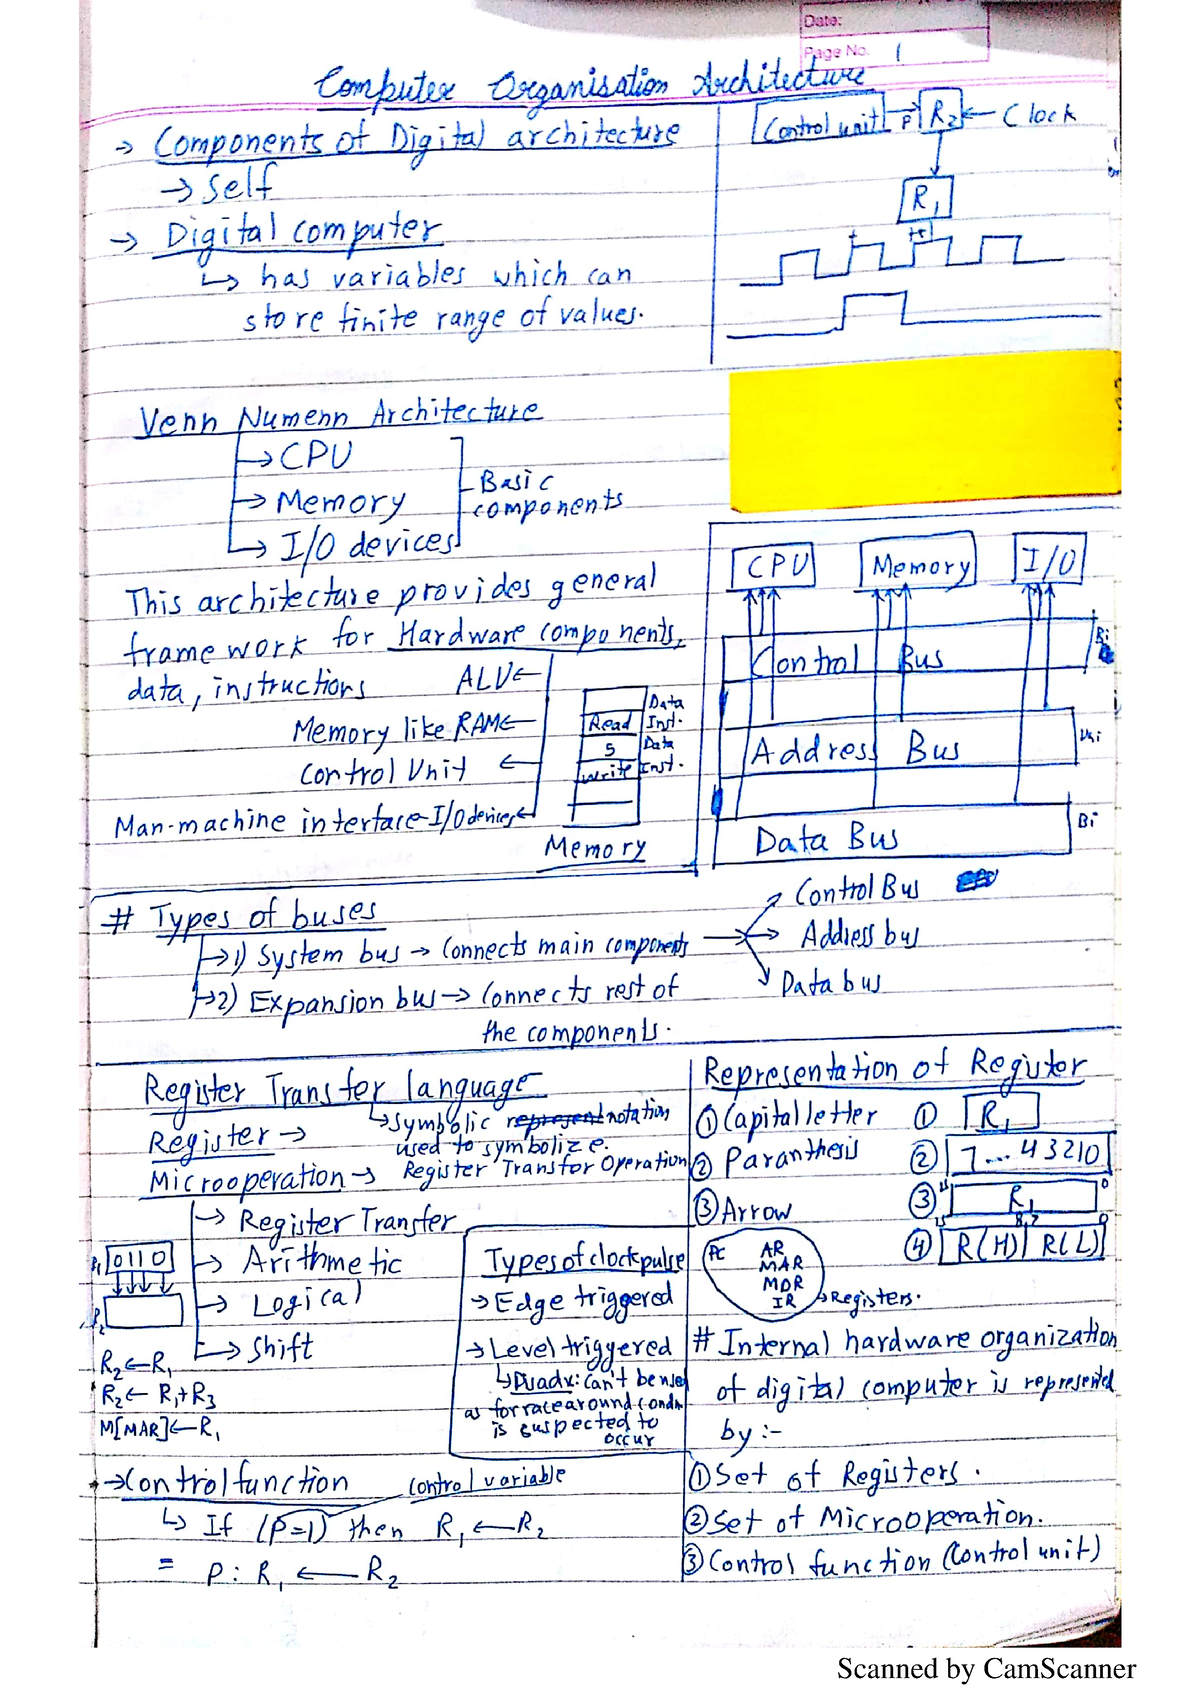 Date:
Page No. 1
Computer Organisation Architecture
→ Components of Digital architecture
→ Self
→ Digital computer
↳ has variables which can
store finite range of values.
Control unit P R2 ← Clock
R1
t t+1
Venn Numenn Architecture
→ CPU
→ Memory
→ I/O devices
Basic
components
This architecture provides general
frame work for Hardware components,
data, instructions
ALU ←
Memory like RAM ←
Control Unit ←
Man-machine interface-I/O devices ←
Data
Read Inst.
5 Data
write Inst.
Memory
CPU Memory I/O
Control Bus Bi
Address Bus Uni
Data Bus Bi
# Types of buses
→ 1) System bus → Connects main components
→ 2) Expansion bus → Connects rest of
the components.
Control Bus
Address bus
Data bus
Register Transfer language
↳ Symbolic represent notation
used to symbolize.
Register →
Microoperation → Register Transfor Operation
→ Register Transfer
→ Arithmetic
→ Logical
→ Shift
R1 0110
R2
R2 ← R1
R2 ← R1+R3
M[MAR] ← R1
Types of clock pulse
→ Edge triggered
→ Level triggered
↳ Disadv: can't be used
as for race around condn
is suspected to
occur
→ Control function
control variable
↳ If (P=1) then R1 ← R2
= P : R1 ← R2
Representation of Register
① Capital letter ① R1
② Paranthesis ② 7...43210
③ Arrow ③ 15 R1 0
④ 15 8,7 0 R(H) R(L)
PC AR
MAR
MDR
IR → Registers.
# Internal hardware organization
of digital computer is represented
by :-
① Set of Registers.
② Set of Microoperation.
③ Control function (Control unit)
Scanned by CamScanner